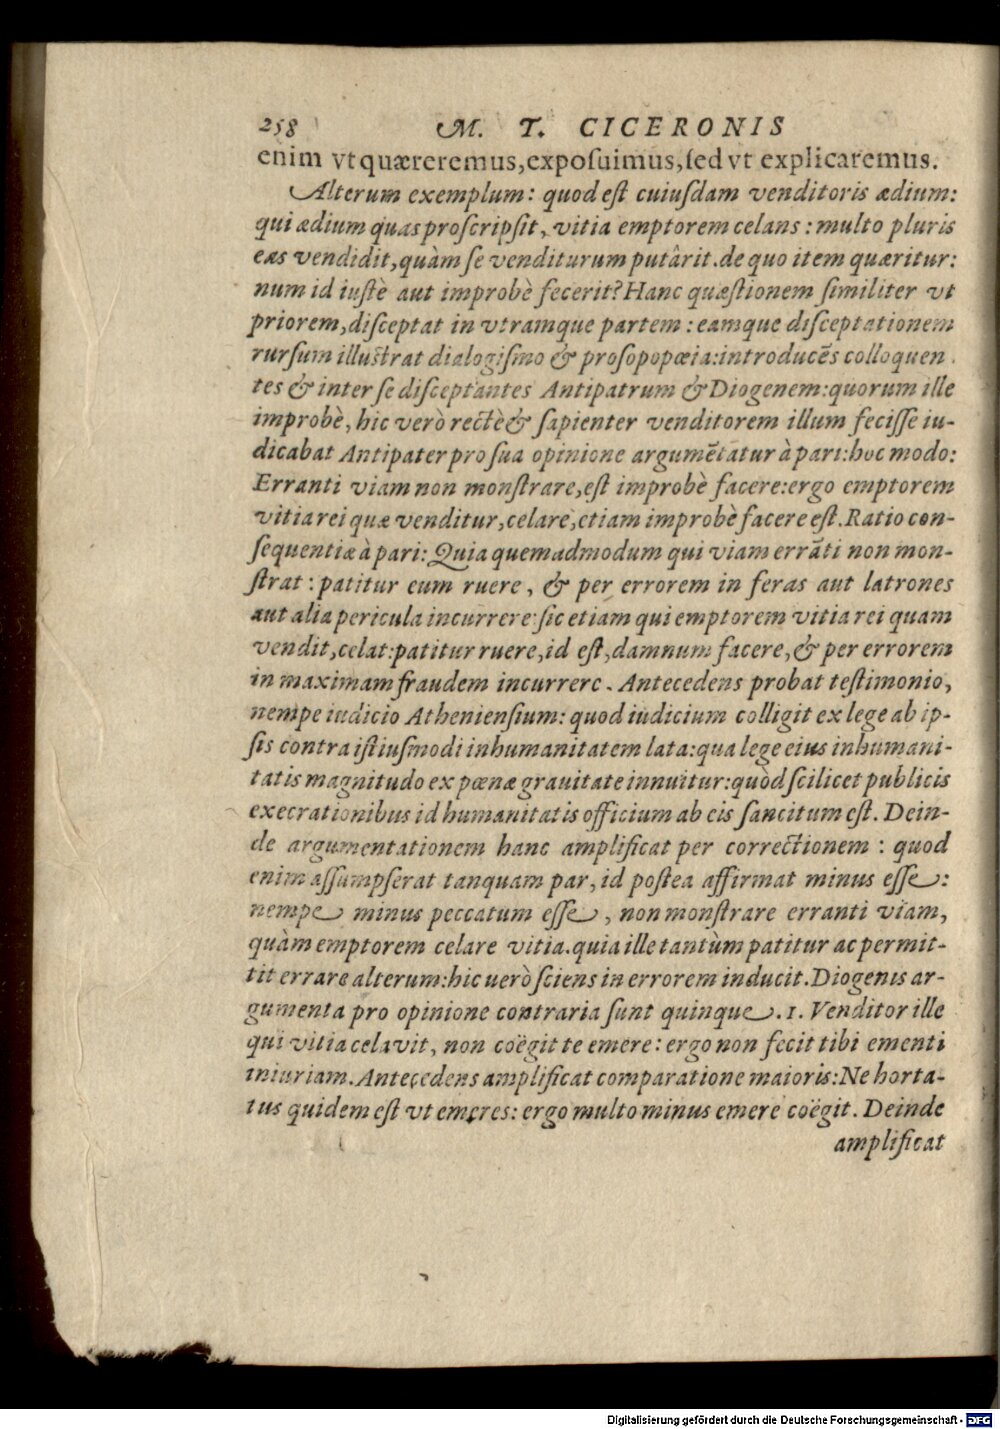 258 M. T. CICERONIS
enim vt quæreremus, exposuimus, sed vt explicaremus.
Alterum exemplum: quod est cuiusdam venditoris ædium:
qui ædium quas proscripsit, vitia emptorem celans: multo pluris
eas vendidit, quàm se venditurum putârit. de quo item quæritur:
num id iustè aut improbè fecerit? Hanc quæstionem similiter vt
priorem, disceptat in vtramque partem: eamque disceptationem
rursum illustrat dialogismo & prosopopœia: introducẽs colloquen
tes & inter se disceptantes Antipatrum & Diogenem: quorum ille
improbè, hic verò rectè & sapienter venditorem illum fecisse iu-
dicabat Antipater pro sua opinione argumẽtatur à pari: hoc modo:
Erranti viam non monstrare, est improbè facere: ergo emptorem
vitia rei quæ venditur, celare, etiam improbè facere est. Ratio con-
sequentiæ à pari: Quia quemadmodum qui viam errãti non mon-
strat: patitur eum ruere, & per errorem in feras aut latrones
aut alia pericula incurrere: sic etiam qui emptorem vitia rei quam
vendit, celat: patitur ruere, id est, damnum facere, & per errorem
in maximam fraudem incurrere. Antecedens probat testimonio,
nempe iudicio Atheniensium: quod iudicium colligit ex lege ab ip-
sis contra istiusmodi inhumanitatem lata: qua lege eius inhumani-
tatis magnitudo ex pœnæ grauitate innuitur: quòd scilicet publicis
execrationibus id humanitatis officium ab eis sancitum est. Dein-
de argumentationem hanc amplificat per correctionem: quod
enim assumpserat tanquam par, id postea affirmat minus esse:
nempe minus peccatum esse, non monstrare erranti viam,
quàm emptorem celare vitia. quia ille tantùm patitur ac permit-
tit errare alterum: hic uerò sciens in errorem inducit. Diogenis ar-
gumenta pro opinione contraria sunt quinque. 1. Venditor ille
qui vitia celavit, non coëgit te emere: ergo non fecit tibi ementi
iniuriam. Antecedens amplificat comparatione maioris: Ne horta-
tus quidem est vt emeres: ergo multo minus emere coëgit. Deinde
amplificat
Digitalisierung gefördert durch die Deutsche Forschungsgemeinschaft - DFG